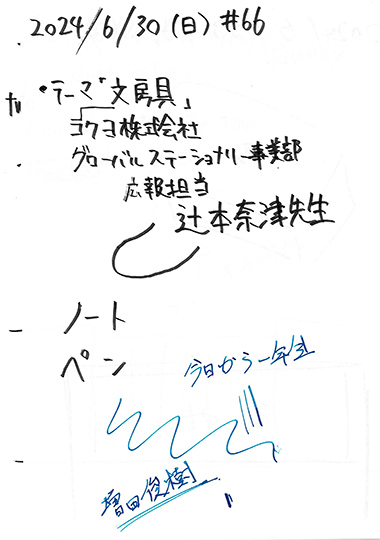 2024/6/30(日)#66
・テーマ「文房具」
コクヨ株式会社
グローバルステーショナリー事業部
広報担当
辻本奈津先生
ノート
ペン
今日から一年生
増田俊樹